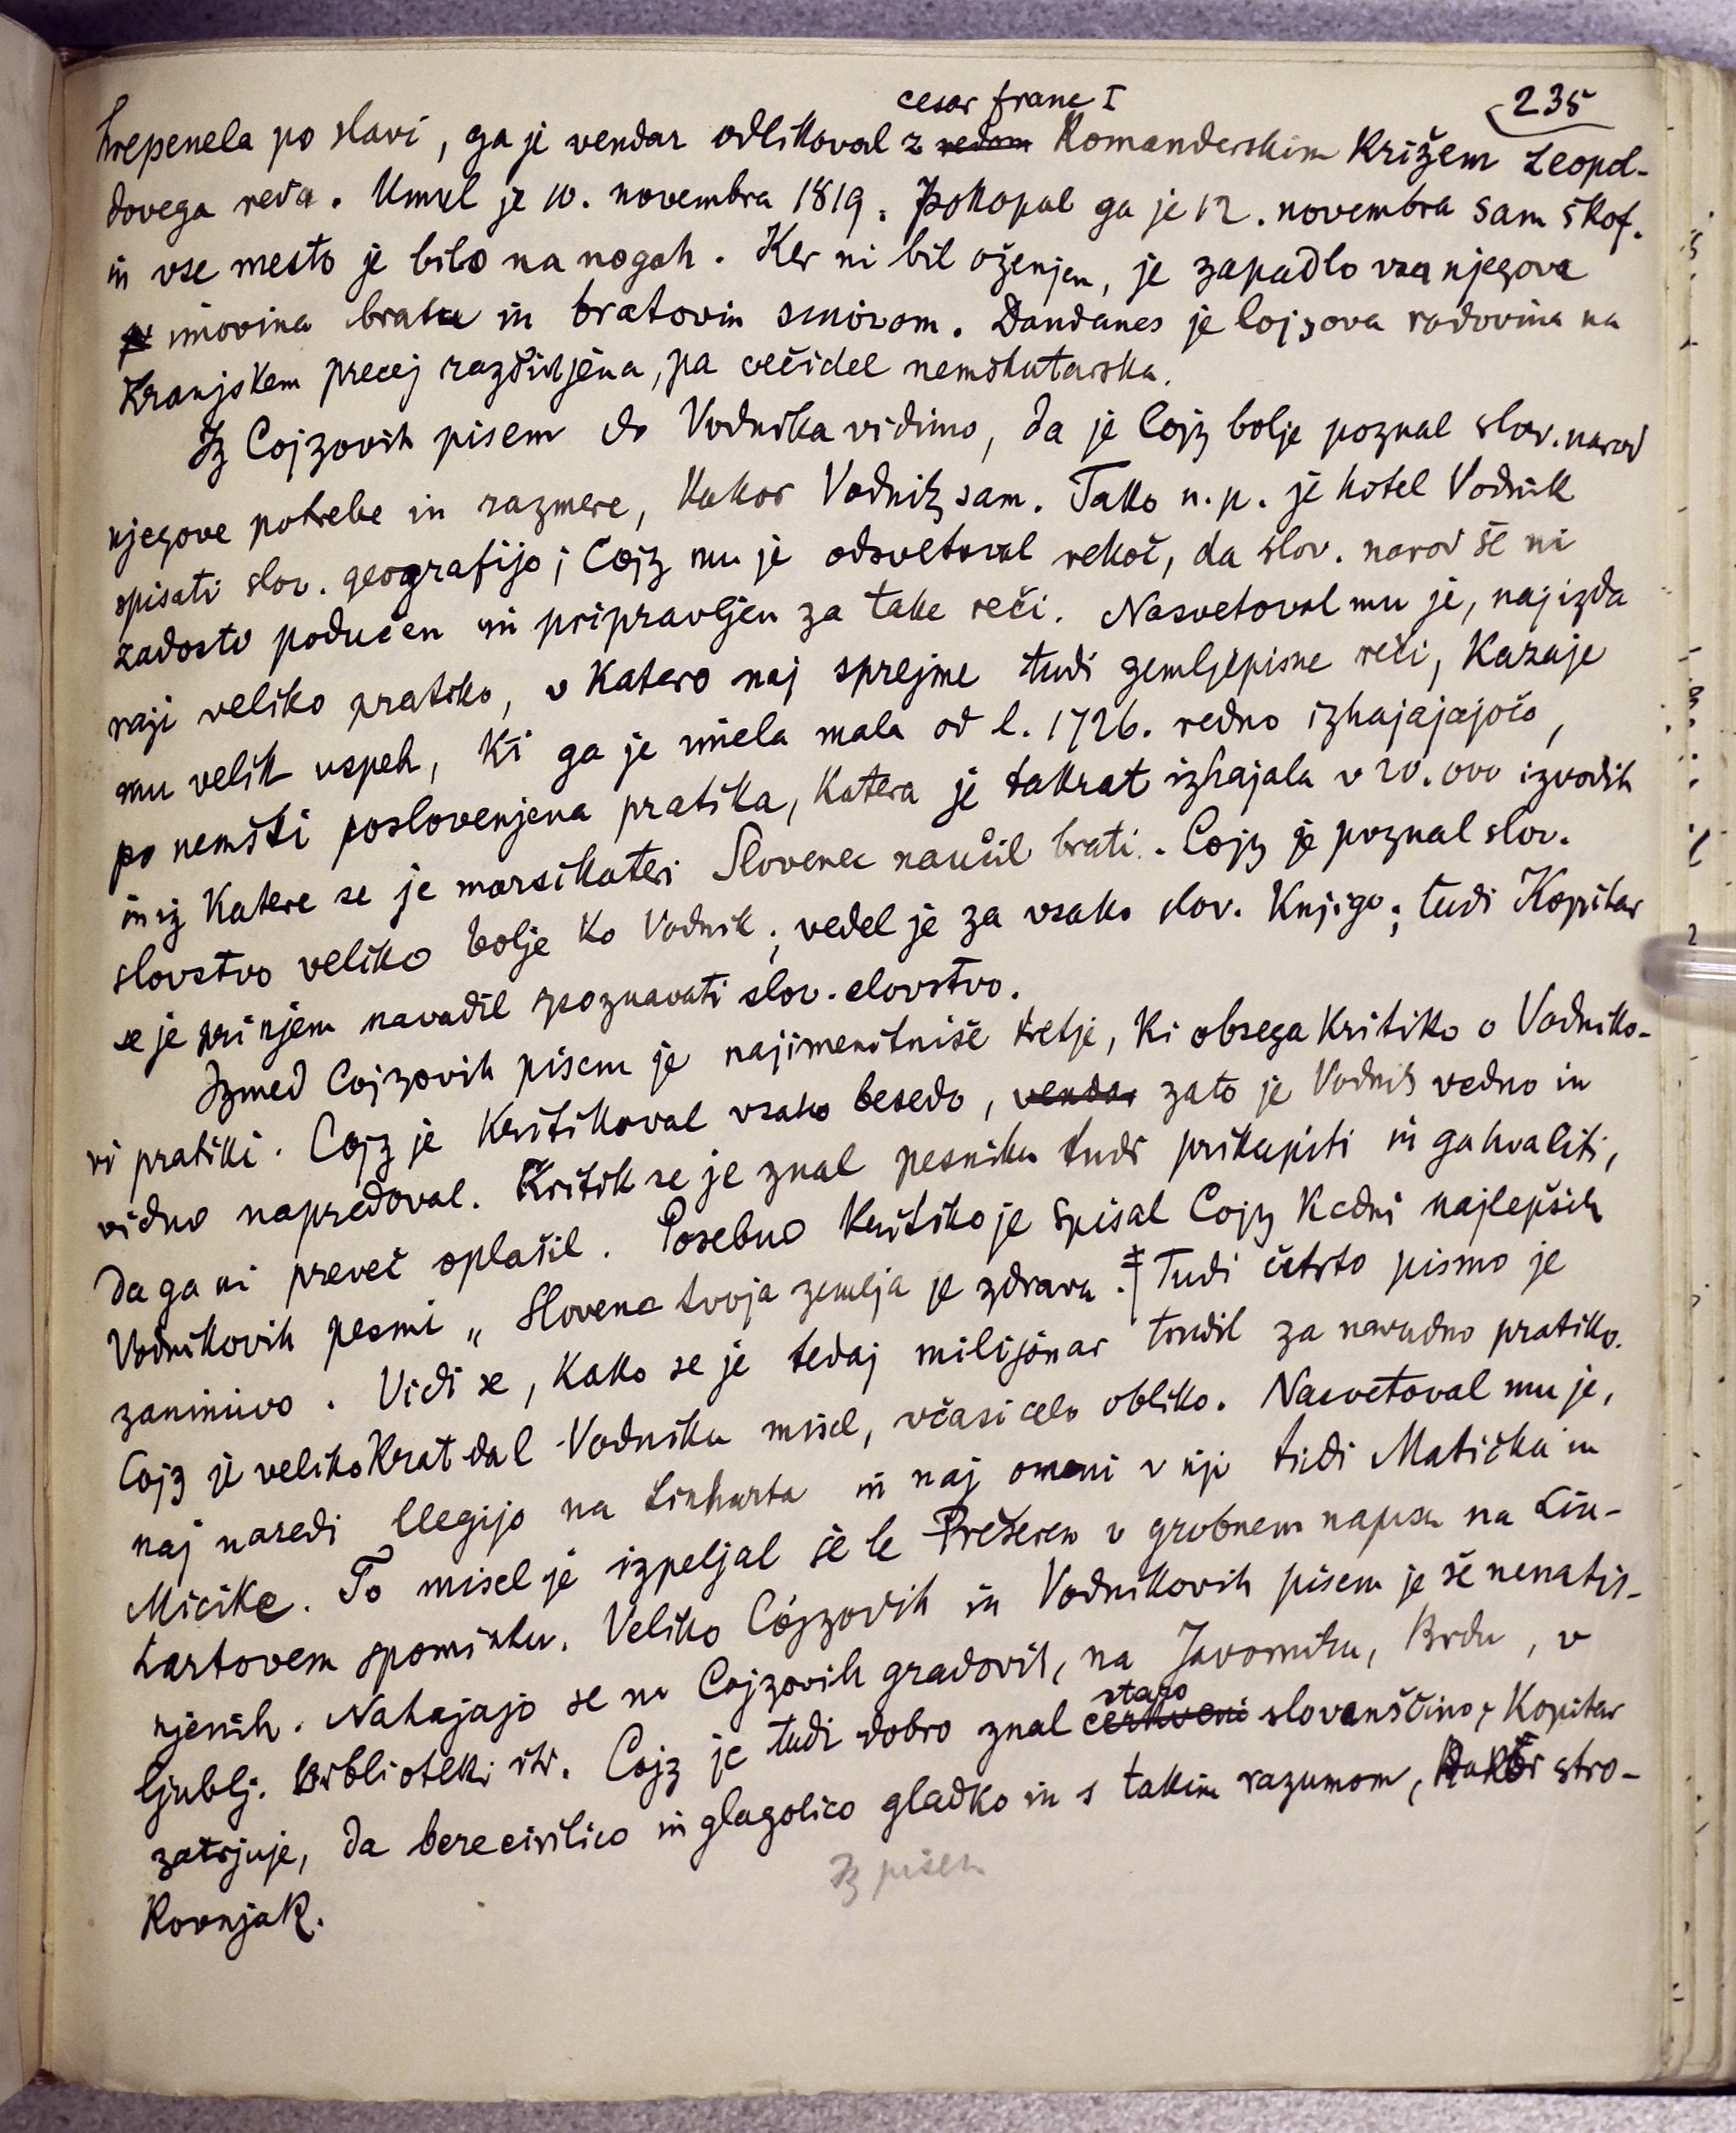 235
cesar franc I
hrepenela po slavi, ga je vendar odlikoval z redom Komanderskim Križem Leopol-
dovega reda. Umrl je 10. novembra 1819. Pokopal ga je 12. novembra sam škof.
in vse mesto je bilo na nogah. Ker ni bil oženjen, je zapadlo vsa njegova
imovina bratu in bratovim sinovom. Dandanes je Cojzova rodovina na
Kranjskem precej razširjena, pa večidel nemškutarska.
Iz Cojzovih pisem do Vodnika vidimo, da je Cojz bolje poznal slov. narod
njegove potrebe in razmere, kakor Vodnik sam. Tako n.p. je hotel Vodnik
spisati slov. geografijo; Cojz mu je odsvetoval rekoč, da slov. narod še ni
zadosti podučen in pripravljen za take reči. Nasvetoval mu je, naj izda
raji veliko pratiko, v katero naj sprejme tudi zemljepisne reči, Kazaje
mu velik uspeh, ki ga je imela mala od l. 1726. redno izhajajajočo,
po nemški poslovenjena pratika, katera je takrat izhajala v 20.000 izvodih
in iz katere se je marsikateri Slovenec naučil brati. Cojz je poznal slov.
slovstvo veliko bolje ko Vodnik; vedel je za vsako slov. Knjigo; tudi Kopitar
se je pri njem navadil spoznavati slov. slovstvo.
Izmed Cojzovih pisem je najimenitniše tretje, ki obsega kritiko o Vodniko-
vi pratiki. Cojz je kritikoval vsako besedo, vendar zato je Vodnik vedno in
vidno napredoval. Kritik se je znal pesniku tudi prikupiti in ga hvaliti,
da ga ni preveč oplašil. Posebno kritiko je spisal Cojz k edni najlepših
Vodnikovih pesmi „Slovenc tvoja zemlja je zdrava. ‡ Tudi četrto pismo je
zanimivo. Vidi se, kako se je tedaj milijonar trudil za navadno pratiko.
Cojz je velikokrat dal Vodniku misel, včasi celo obliko. Nasvetoval mu je,
naj naredi elegijo na Linharta in naj omeni v nji tudi Matička in
Micike. To misel je izpeljal še le Prešeren v grobnem napisu na Lin-
hartovem spominku. Veliko Cojzovih in Vodnikovih pisem je še nenatis-
njenih. Nahajajo se na Cojzovih gradovih, na Javorniku, Brdu, v
staro
ljublj. biblioteki itd. Cojz je tudi dobro znal cerkveni slovanščino; Kopitar
zatrjuje, da bere cirilico in glagolico gladko in s takim razumom, kakor stro-
kovnjak.
Iz pisem